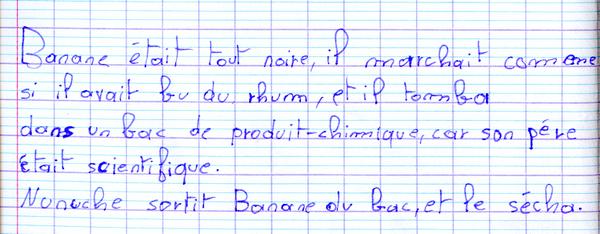 Banane était tout noire, il marchait comme
si il avait bu du rhum, et il tomba
dans un bac de produit-chimique, car son pére
était scientifique.
Nunuche sortit Banane du bac, et le sécha.